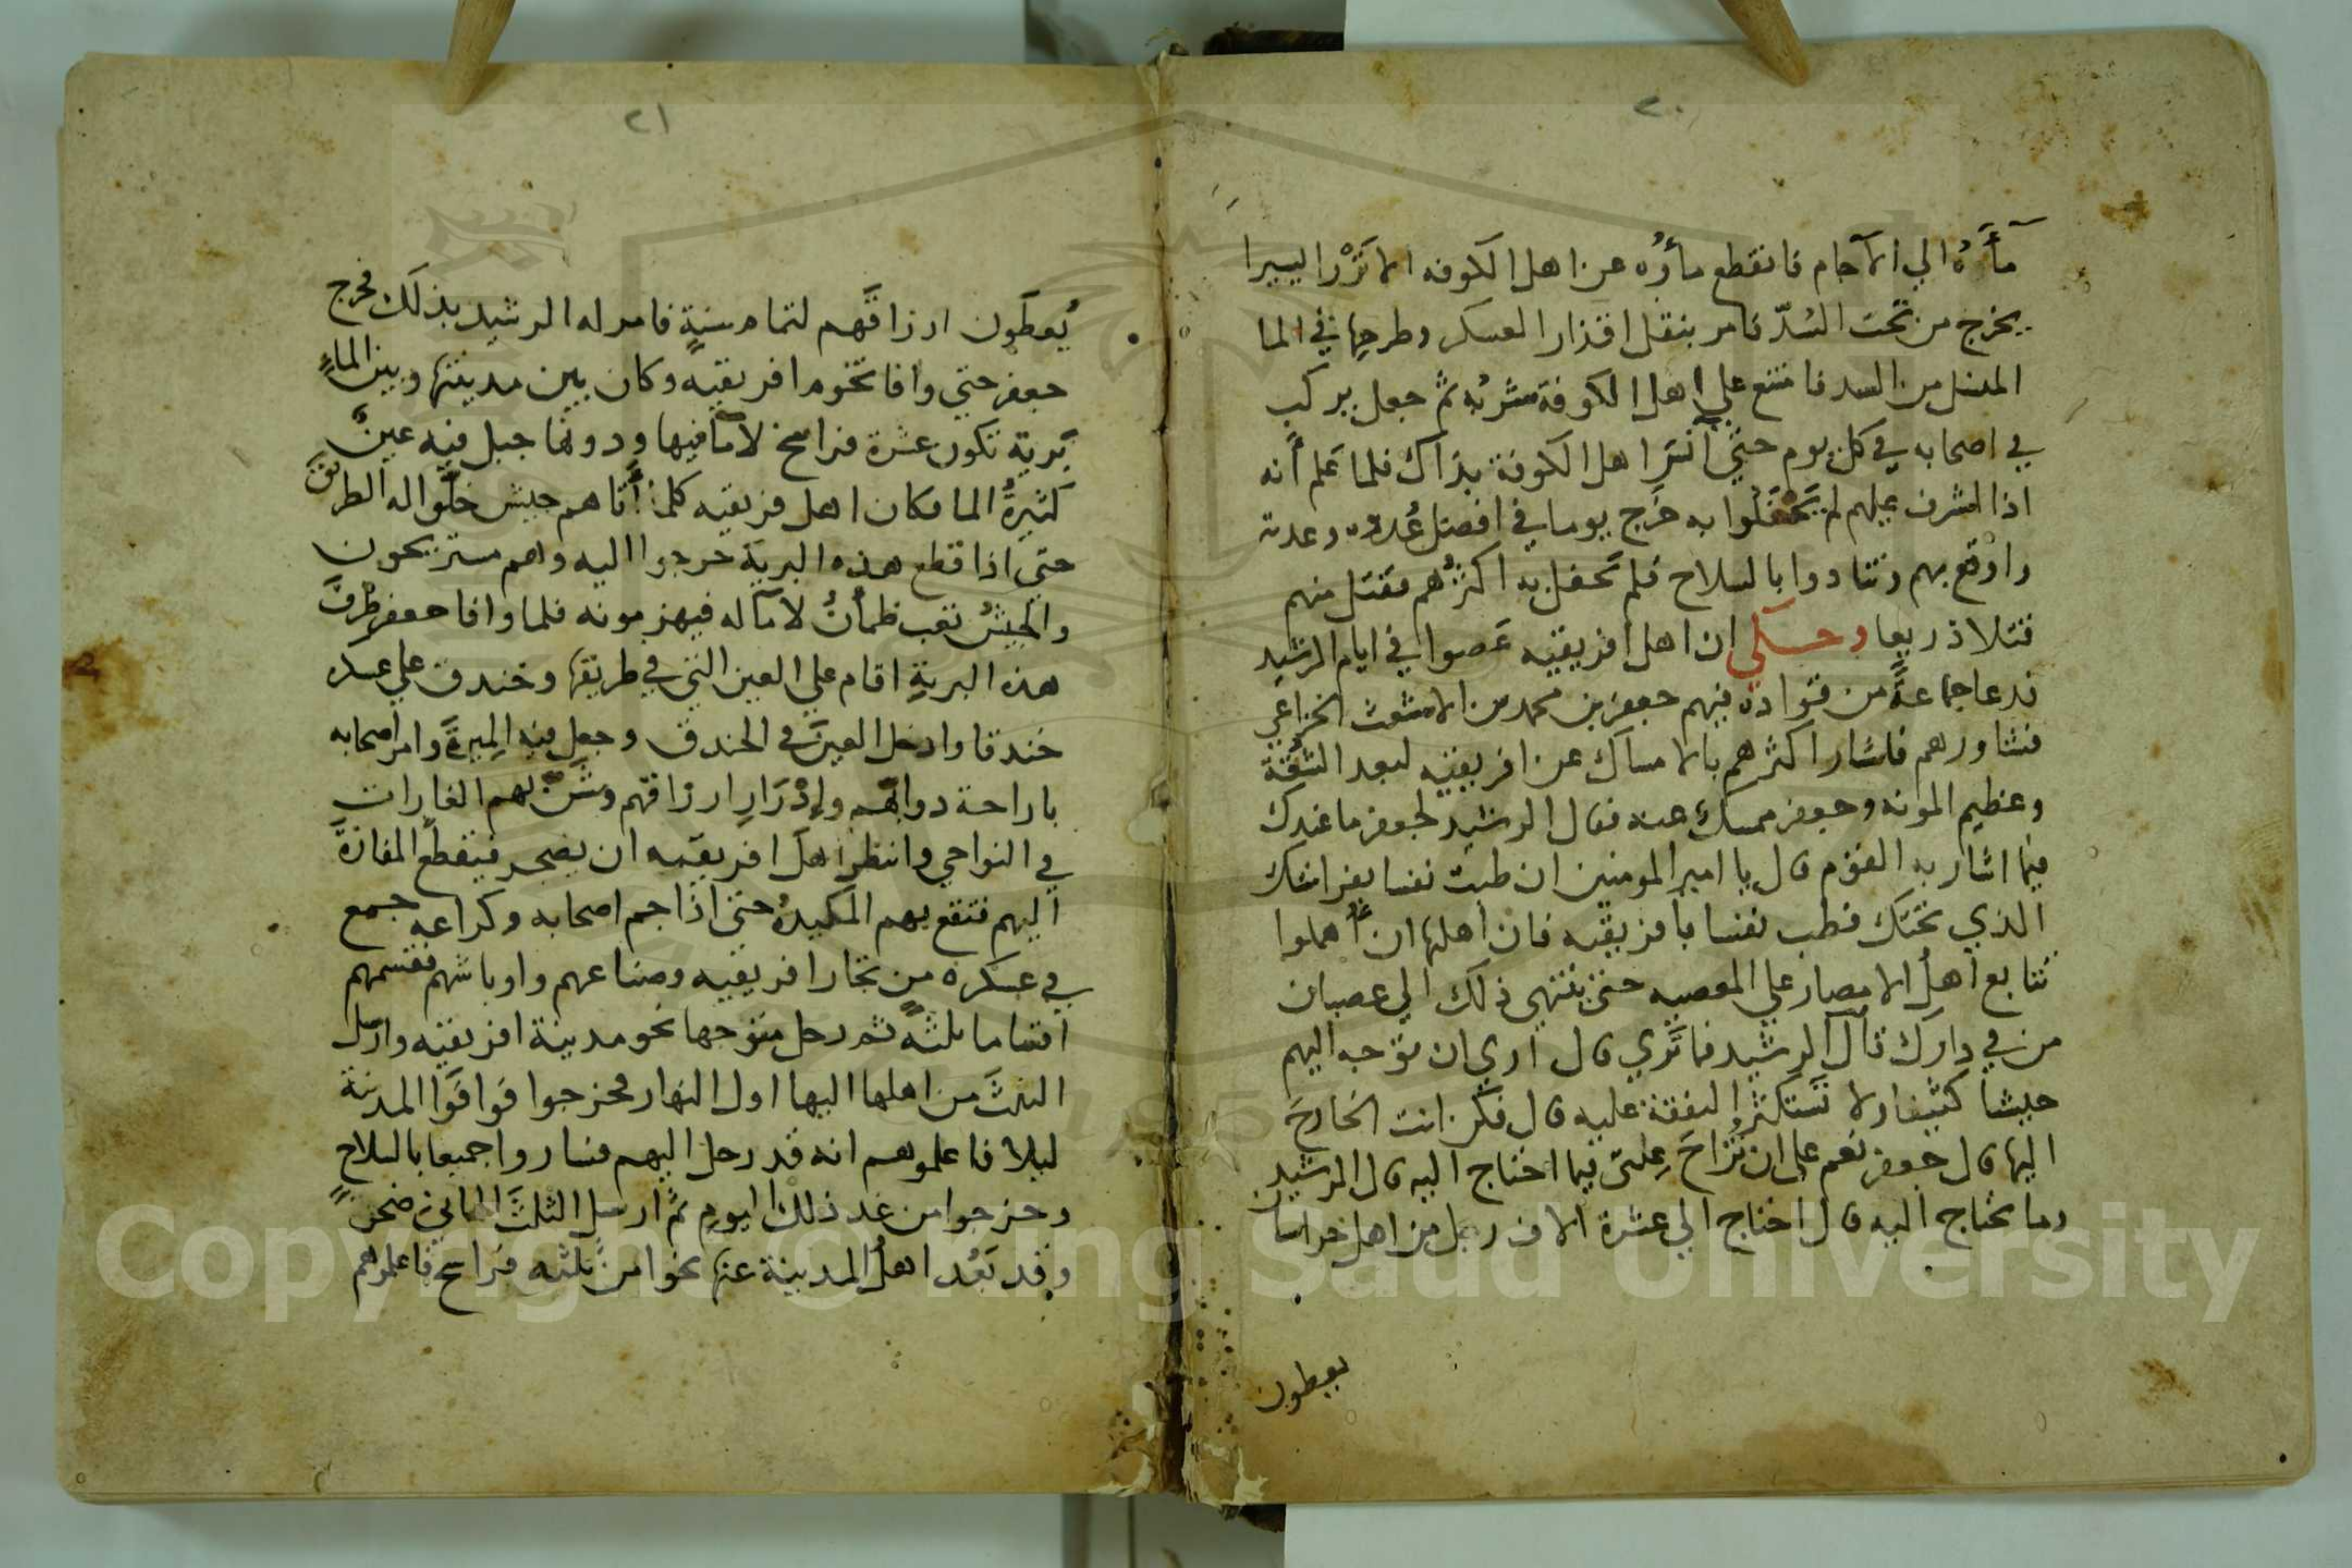 ٢٠
مأَهُ الي الآجام فانقطع مأوُه عن اهل الكوفه الا نَزْرا ليسيرا
يخرج من تحت السُدّ فامر بنقل اقذار العسكر وطرحها في الما
المنسل من السد فامتنع علي اهل الكوفة شربُه ثم جعل يركب
في اصحابه في كل يوم حتي آنسَ اهل الكوفة بذاك فلما عَلم أنه
اذا اشرف عليهم لم يَحْفَلوا به خَرج يوما في افضل عُدده وعدته
واوقع بهم وتنادوا بالسلاح فلم تَحفل به اكثرُهم فقتل منهم
قتلا ذريعا وحــكي ان اهل افريقيه عَصوا في ايام الرشيد
فدعا جماعةً من قواده فيهم جعفر بن محمد بن الاشعث الخزاعي
فشاورهم فاشار اكثرهم بالامساك عن افريقيه لبعد الشُقة
وعظيم المونه وجعفر ممسكٌ عنه فقال الرشيد لجعفر ما عندك
فيما اشار به القوم قال يا امير المومنين ان طبت نفسا بفراشك
الذي تحتك فطب نفسا بأفريقيه فان اهلها ان أُهملوا
تتابع اهلُ الامصار علي المعصيه حتي ينتهي ذلك الي عصيان
من في دارك قال الرشيد فما تَري قال أري ان توجه اليهم
جيشا كثيفا ولا تَستكثر النفقة عليه قال فكن انت الخارجَ
اليها قال جعفر نعم علي ان تُزاحَ عِلتي فيما احتاج اليه قال الرشيد
وما تحتاج اليه قال احتاج الي عشرة الاف رجل من اهل خراسان
يعطون
٢١
يُعطَون ارزاقَهم لتمام سنةٍ فامر له الرشيد بذلك فخرج
جعفر حتي وافا تخوم افريقيه وكان بين مدينتها وبين الماءِ
بَرية تكون عشرة فراسخ لا مآ فيها ودونها جبل فيه عينٌ
كثيرةُ الما فكان اهل فريقيه كلما أتاهم جيش خلَّوا له الطريقَ
حتي اذا قطع هذه البرية خرجوا اليه وهم مستريحون
والجيشُ تعب ظمأنُ لا مآ له فيهزمونه فلما وافا جعفر طرفَ
هذه البريةِ اقام علي العين التي في طريقها وخندق علي عسكره
خندقا وادخل العينَ في الخندق وجعل فيه المِيرةَ وامر اصحابه
باراحة دوابهم وإدْرَارِ ارزاقهم وشَنّ لهم الغارات
في النواحي وانتظر اهلَ افريقيه ان يضجر فيقطعَ المفازةَ
اليهم فتقع بهم المكيدةُ حتي اذا جم اصحابه وكراعه جمع
في عسكره من تجار افريقيه وصناعهم واوباشهم فقسمهم
اقساما ثلثهً ثم رحل متوجها نحو مدينة افريقيه وارسل
الثلثَ من اهلها اليها اول النهار فخرجوا فوافَوا المدينة
ليلا فاعلموهم انه قد رحل اليهم فساروا جميعا بالسلاح
وخرجوا من غد ذلك اليوم ثم ارسل الثلثَ الثاني ضحوةً
وقد بَعُد اهلُ المدينة عنها نحوا من ثلثه فراسخ فاعلموهم